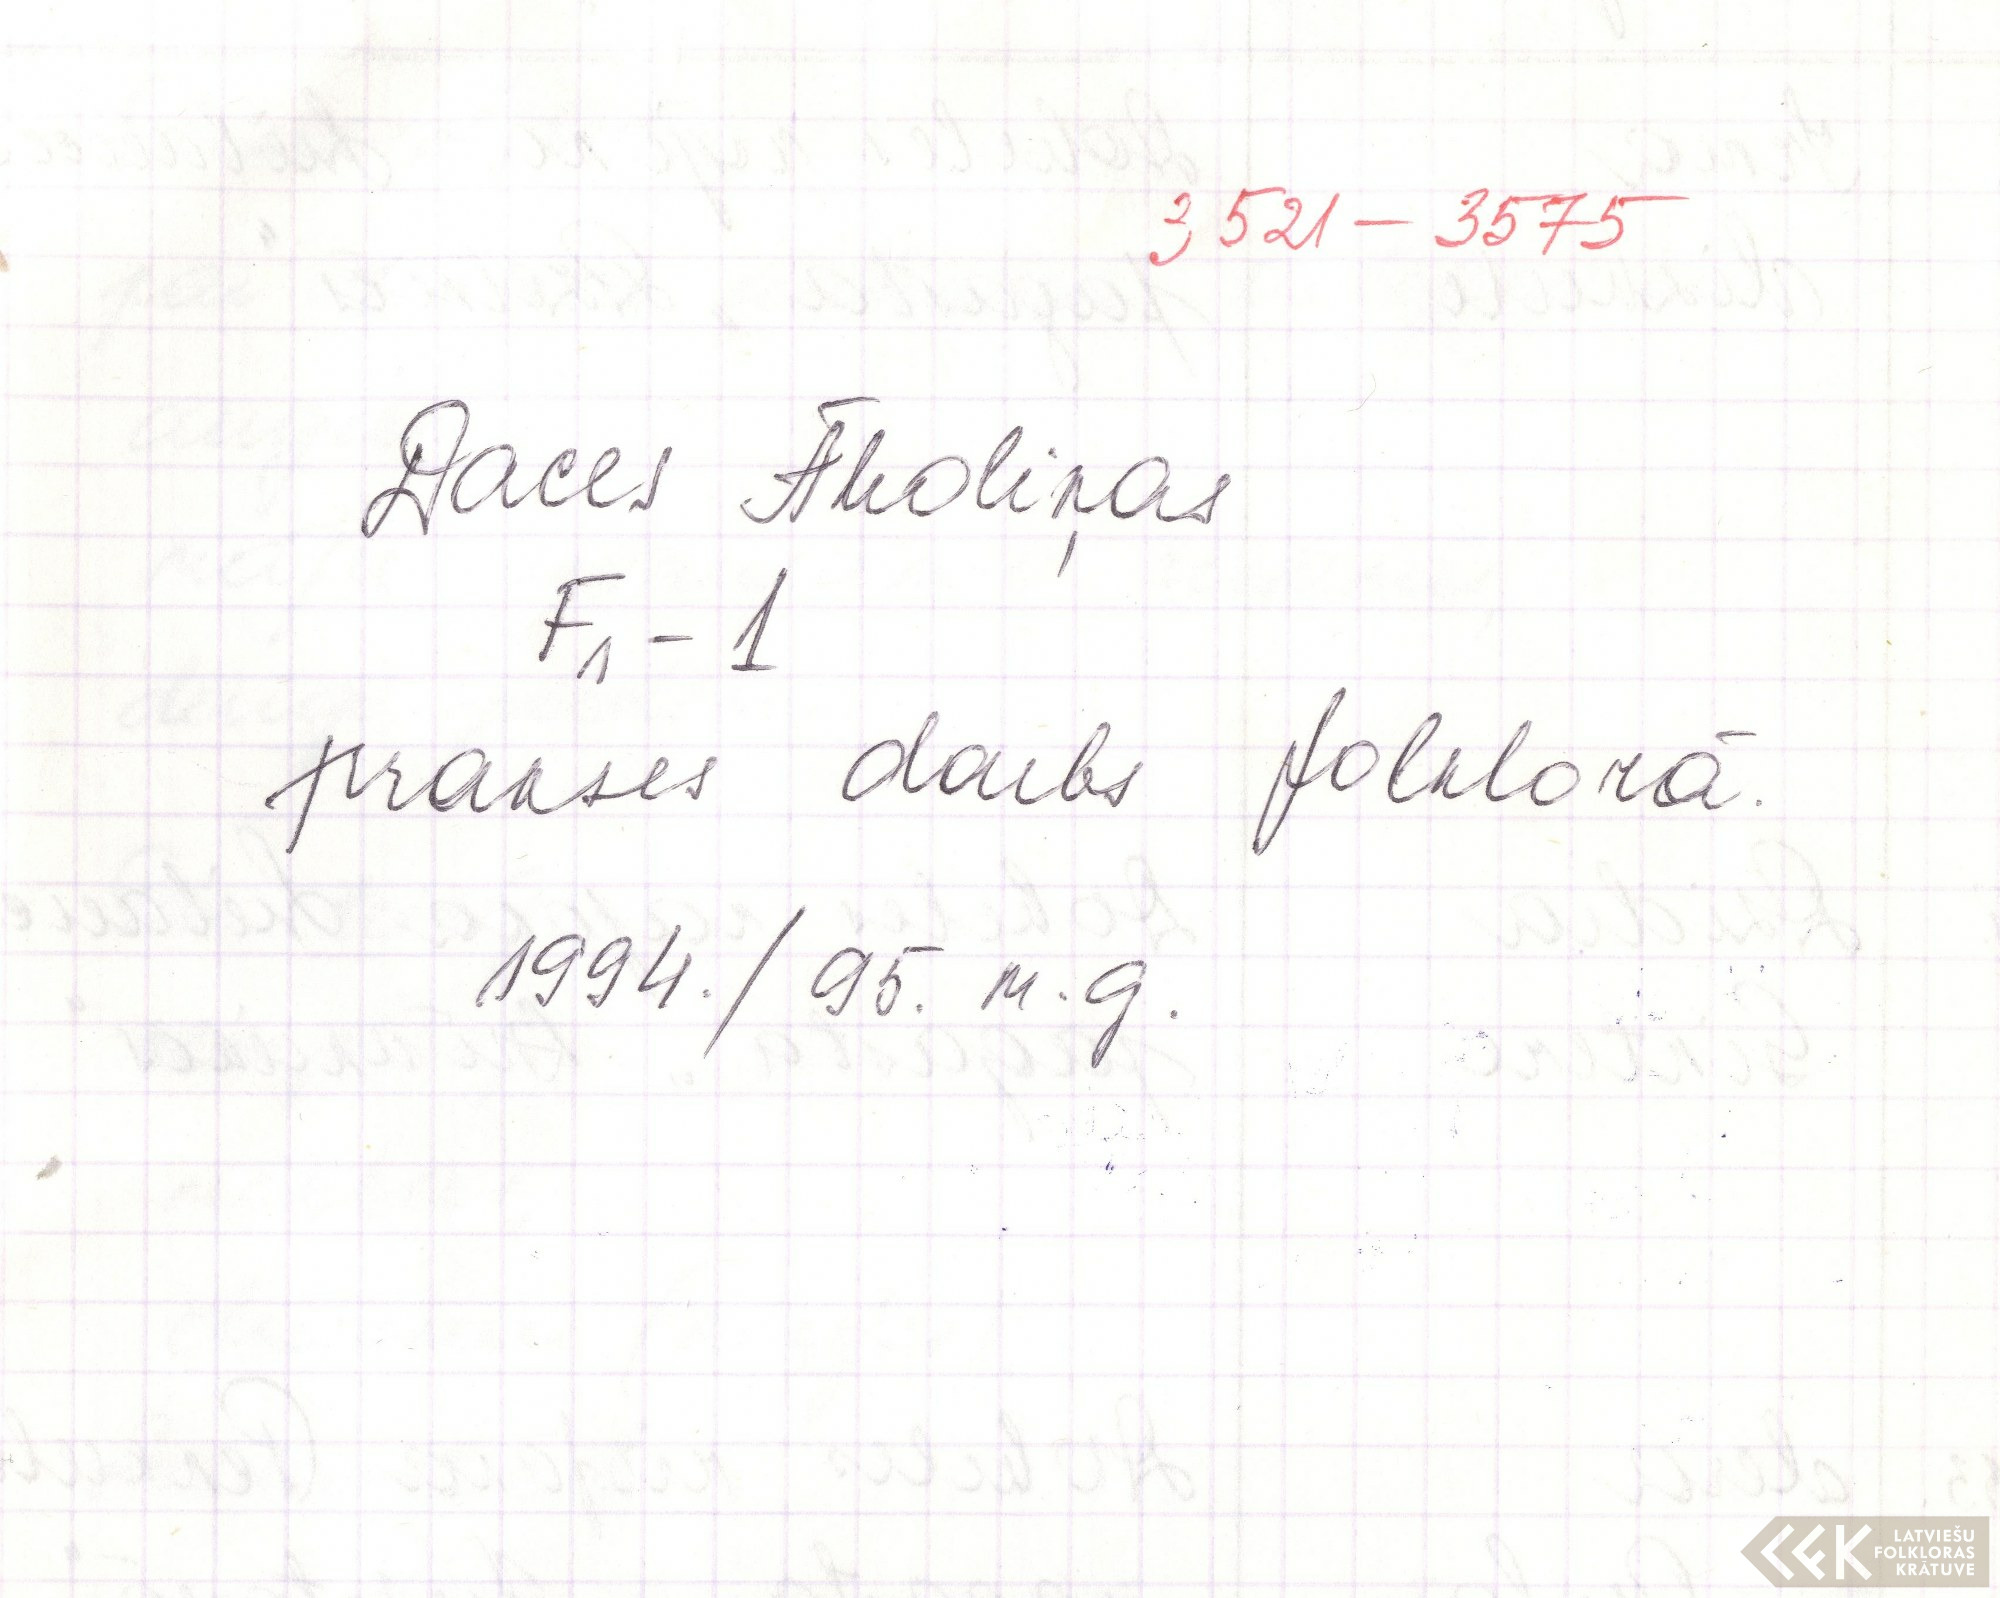 3521 - 3575
Daces Āboliņas
F1 - 1
prakses darbs folklorā.
1994./95. m. g.
LATVIEŠU
FOLKLORAS
KRĀTUVE